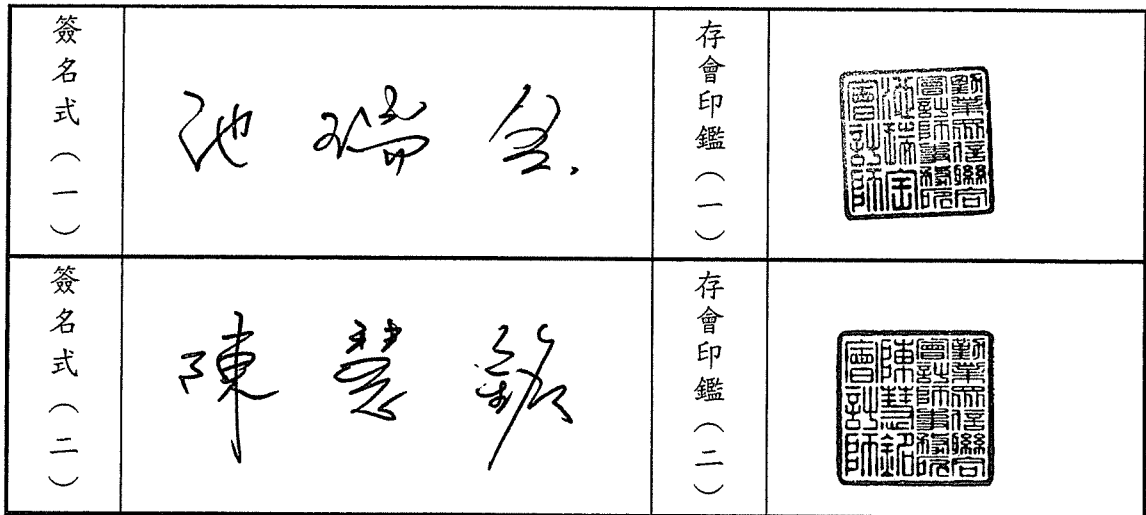 簽名式（一）
池瑞全
存會印鑑（一）
勤業眾信聯合
會計師事務所
池瑞全
會計師
簽名式（二）
陳慧銘
存會印鑑（二）
勤業眾信聯合
會計師事務所
陳慧銘
會計師